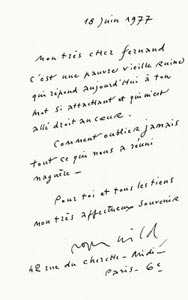 18 juin 1977
mon très cher fernand
c'est une pauvre vieille Ruine
qui répond aujourd'hui à ton
mot si attachant et qui m'est
allé droit au cœur.
Comment oublier jamais
tout ce qui nous a réuni
naguère –
Pour toi et tous les tiens
mon très affectueux souvenir
roger wild
42 rue du cherche-midi –
Paris – 6e